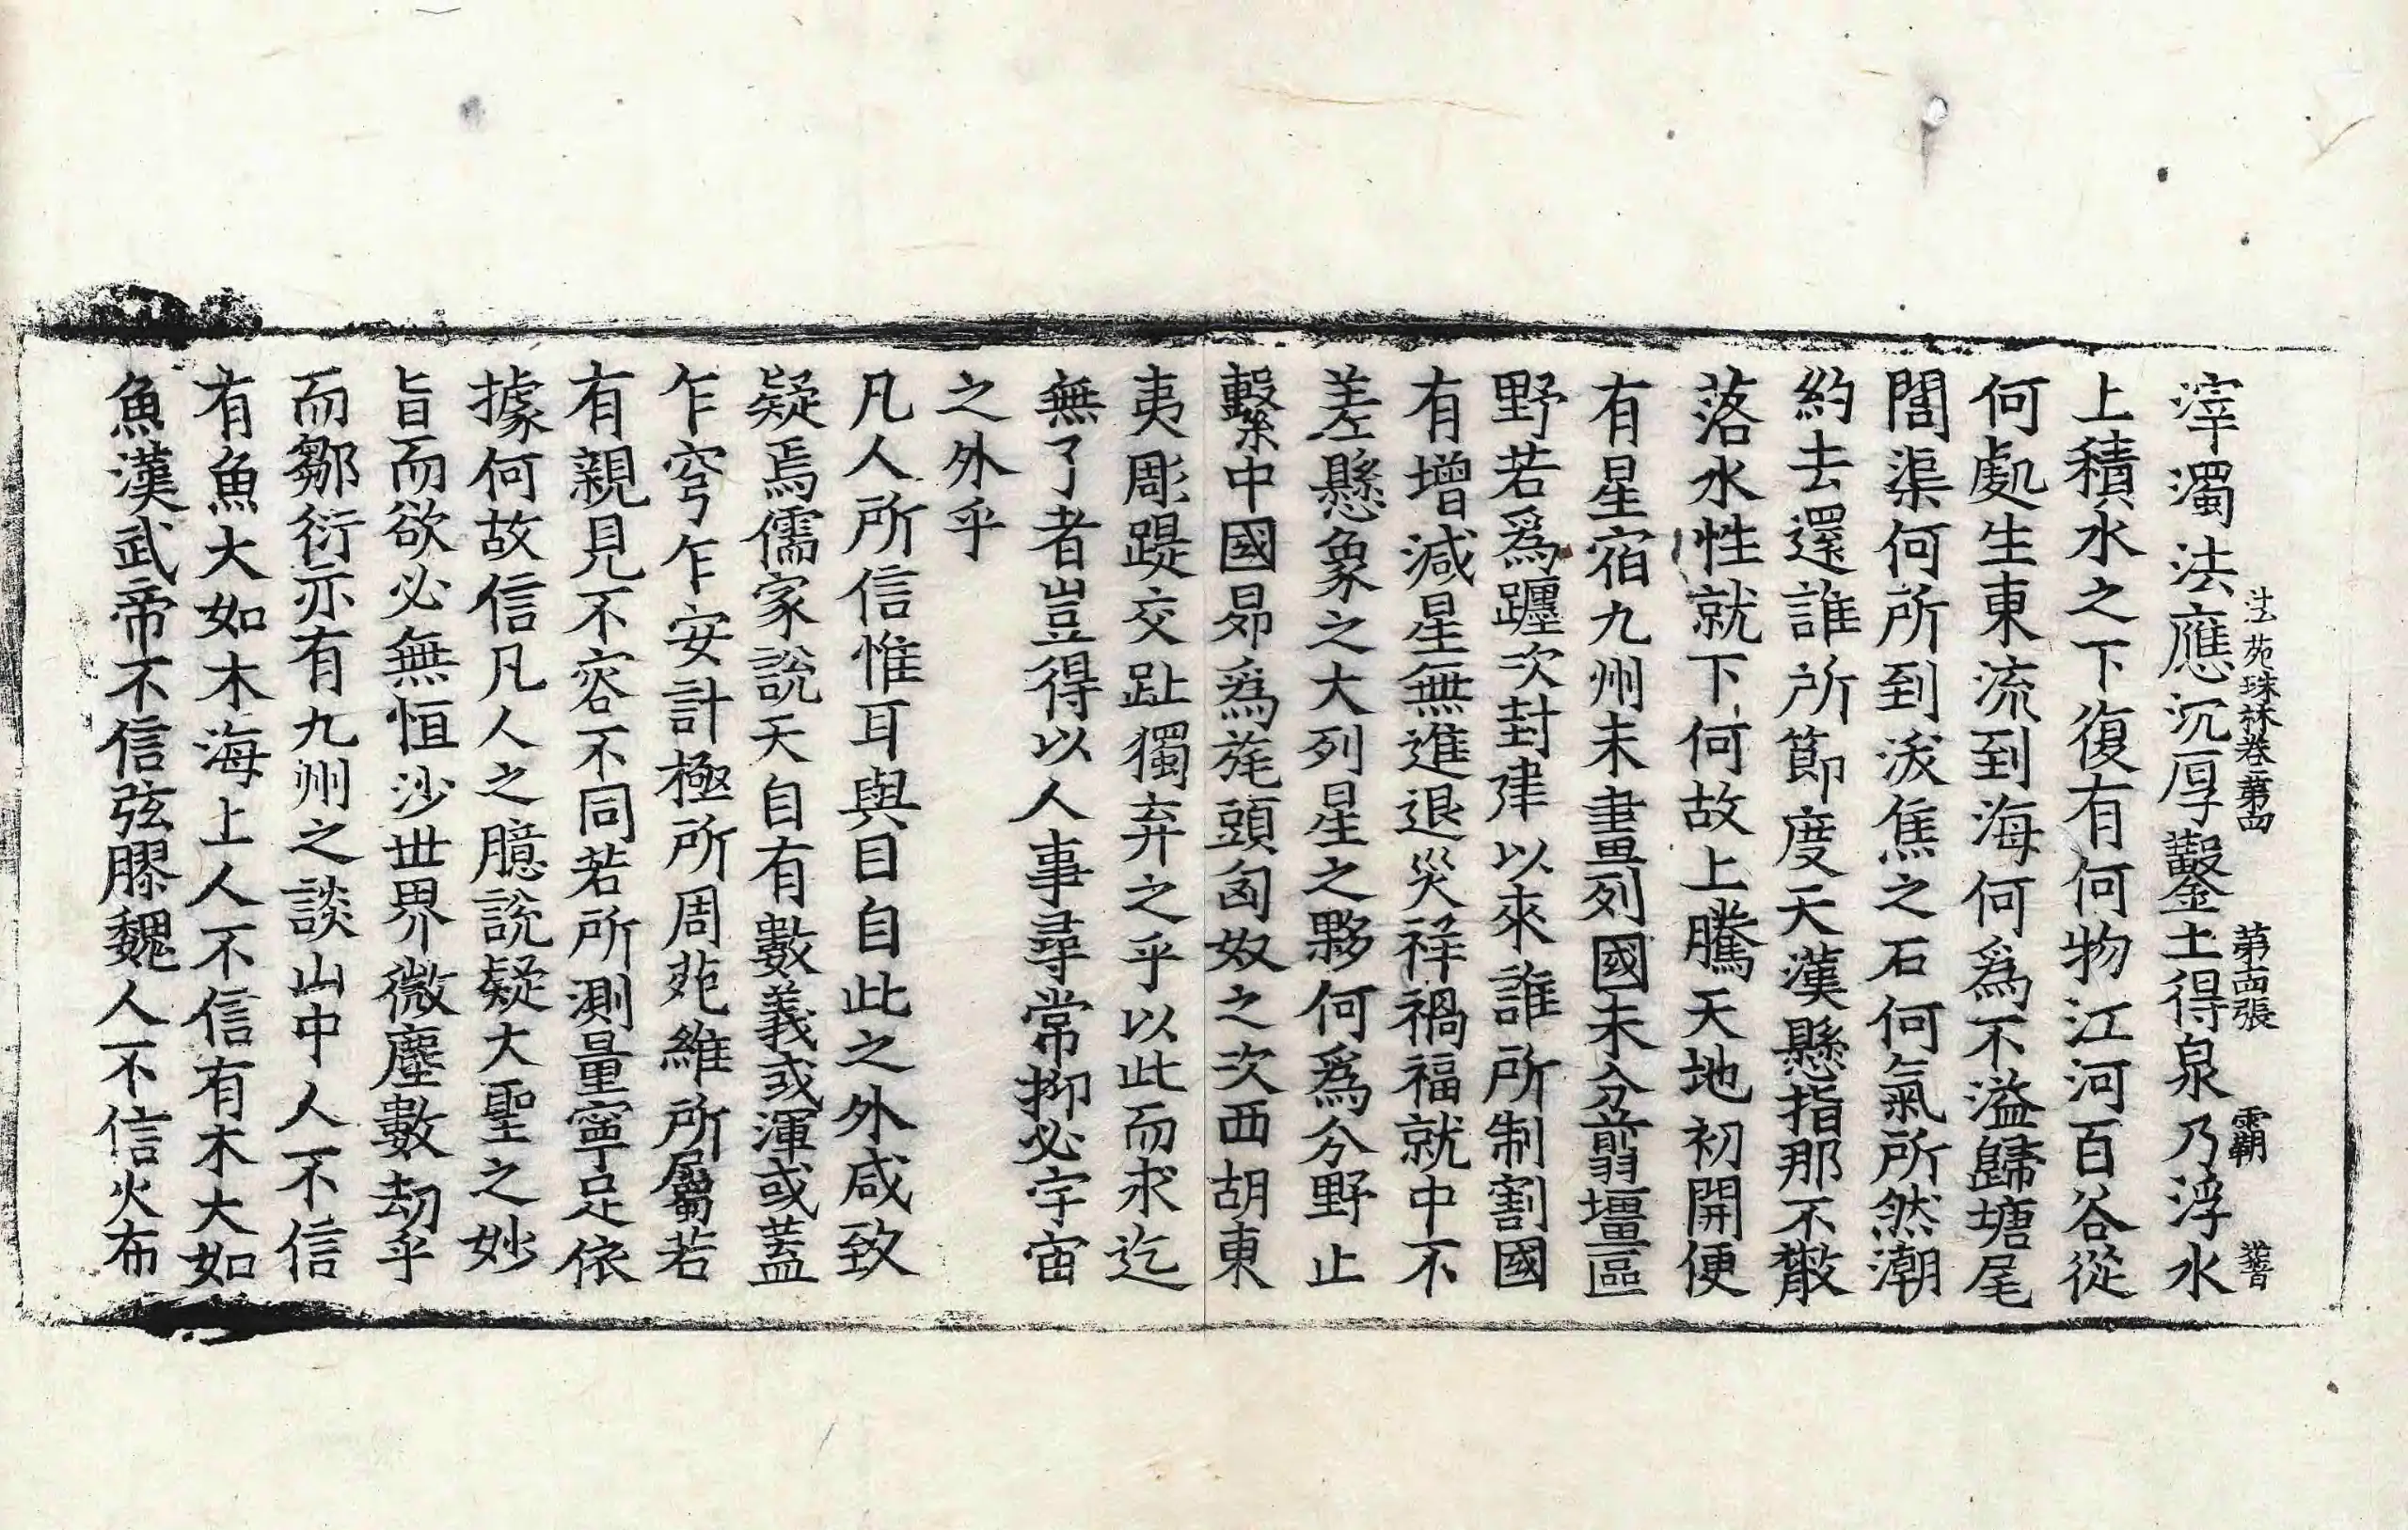 法苑珠林卷第四 第四張 霸
滓濁法應沉厚鑿土得泉乃浮水
上積水之下復有何物江河百谷從
何處生東流到海何爲不溢歸塘尾
閭渠何所到沃焦之石何氣所然潮
約去還誰所節度天漢懸指那不散
落水性就下何故上騰天地初開便
有星宿九州未畫列國未分翦壃區
野若爲躔次封建以來誰所制割國
有增減星無進退災祥禍福就中不
差懸象之大列星之夥何爲分野止
繫中國昴爲旄頭匈奴之次西胡東
夷彫踶交趾獨弃之乎以此而求迄
無了者豈得以人事尋常抑必宇宙
之外乎
凡人所信惟耳與目自此之外咸致
疑焉儒家說天自有數義或渾或蓋
乍穹乍安計極所周苑維所屬若
有親見不容不同若所測量寧足依
據何故信凡人之臆說疑大聖之妙
旨而欲必無恒沙世界微塵數劫乎
而鄒衍亦有九州之談山中人不信
有魚大如木海上人不信有木大如
魚漢武帝不信弦膠魏人不信火布